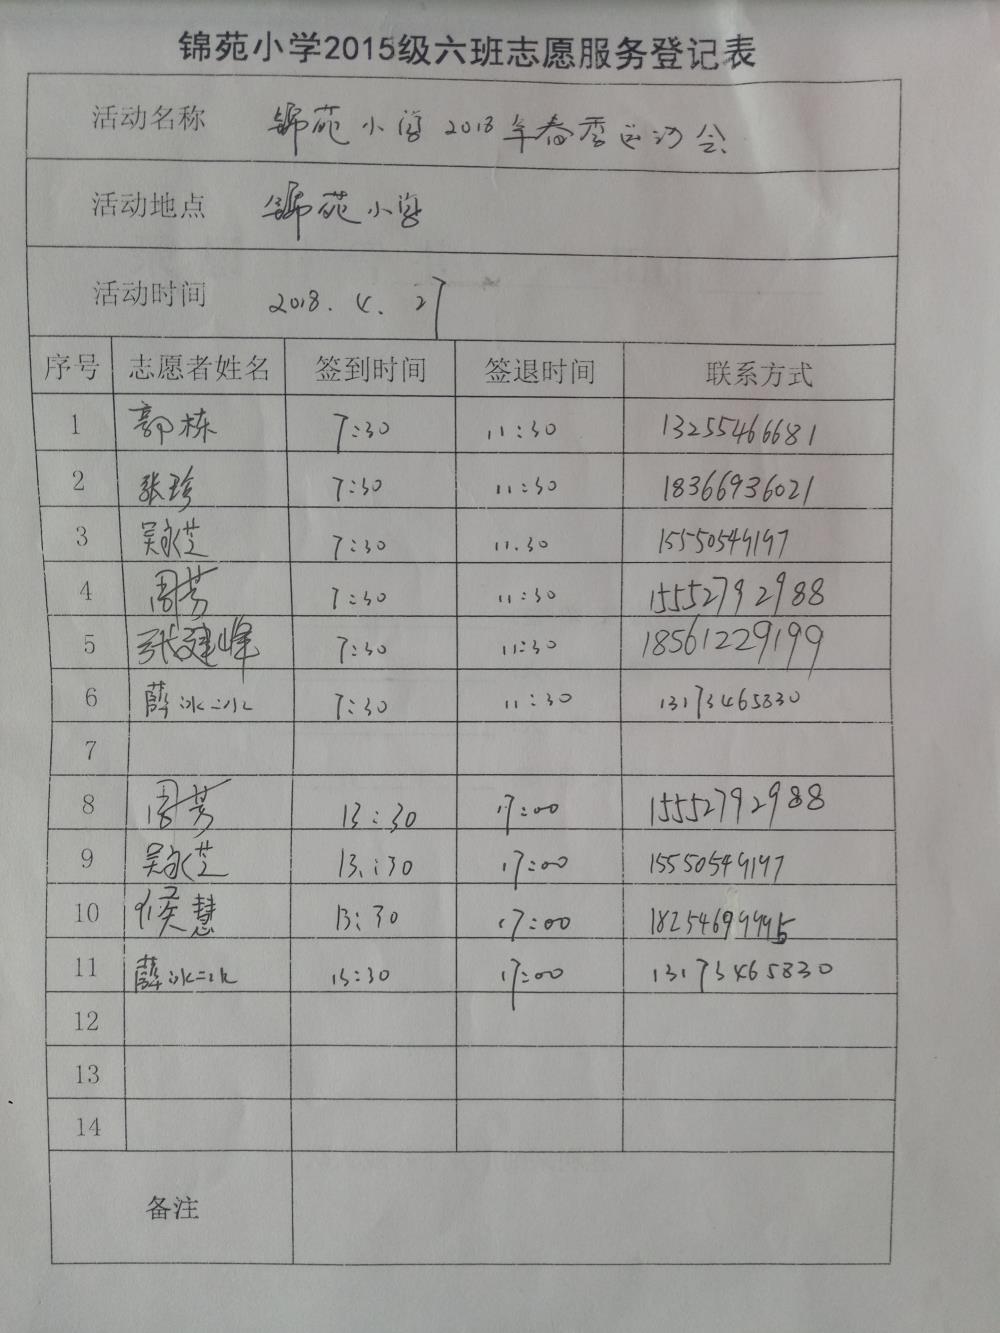 锦苑小学2015级六班志愿服务登记表
活动名称 锦苑小学2018年春季运动会
活动地点 锦苑小学
活动时间 2018.4.27
序号 志愿者姓名 签到时间 签退时间 联系方式
1 郭栋 7:30 11:30 13255466681
2 张珍 7:30 11:30 18366936021
3 吴永芝 7:30 11.30 15550549197
4 周芳 7:30 11:30 15552792988
5 张建峰 7:30 11:30 18561229199
6 薛冰冰 7:30 11:30 13173465830
7
8 周芳 13:30 17:00 15552792988
9 吴永芝 13:30 17:00 15550549197
10 侯慧 13:30 17:00
11 薛冰冰 13:30 17:00 13173465830
12
13
14
备注